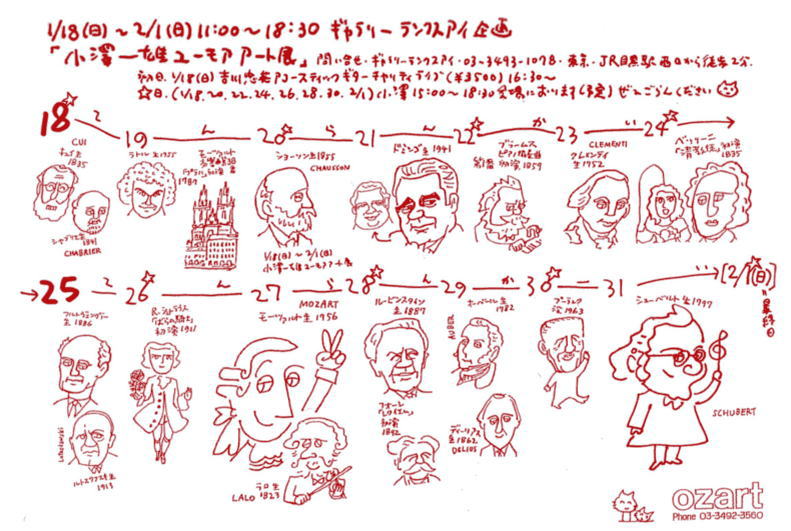 1/18(日)～2/1(日) 11:00～18:30 ギャラリー ランクスアイ 企画
「小澤一雄ユーモアアート展」問い合せ・ギャラリーランクスアイ・03-3493-1078・東京・JR目黒駅 西口から徒歩2分
初日 1/18(日) 吉川忠英アコースティックギターチャリティライブ(¥3500) 16:30～
☆日、(1/18.20.22.24.26.28.30.2/1)(小澤15:00～18:30会場におります(予定)ぜひごらんください
18 て 19 ん 20 ら 21 ん 22 か 23 い 24
CUI
キュイ生
1835
シャブリエ生
1841
CHABRIER
ラトル生1955
モーツァルト
交響曲38
「プラハ」初演
1787
ショーソン生1855
CHAUSSON
1/18(日)～2/1(日)
小澤一雄ユーモアアート展
ドミンゴ生1941
ブラームス
ピアノ協奏曲
初演1859
CLEMENTI
クレメンティ
生1752
ベッリーニ
「清教徒」初演
1835
25 て 26 ん 27 ら 28 ん 29 か 30 31 い [2/1(日)]
最終日
フルトヴェングラー
生1886
Lutosławski
ルトスワフスキ生
1913
R.シュトラウス
「ばらの騎士」
初演1911
MOZART
モーツァルト生1756
LALO
ラロ生
1823
ルービンスタイン
生1887
フォーレ
「レクイエム」
初演
オーベール生
1782
AUBER
ディーリアス
生1862
DELIUS
プーランク
没1963
シューベルト生1797
SCHUBERT
ozart
Phone 03-3492-3560